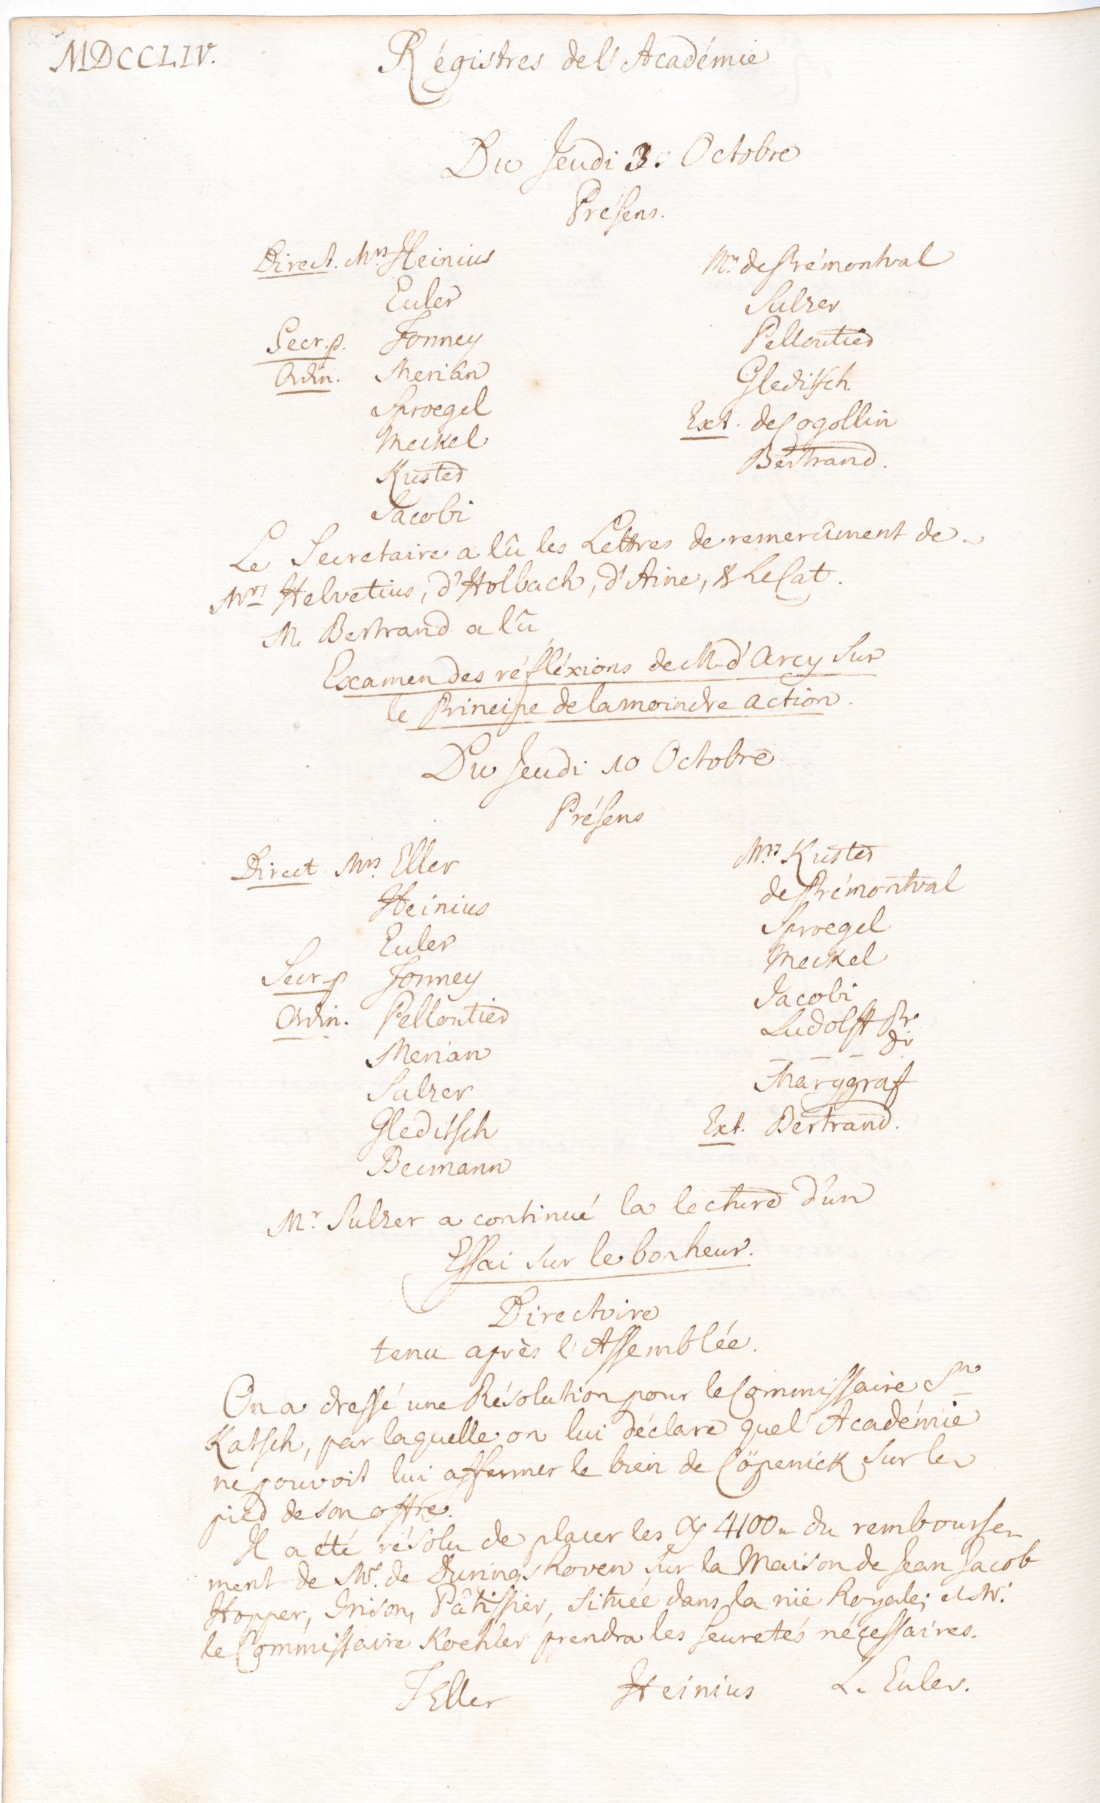 MDCCLIV.
Régistres de l'Académie
Du Jeudi 3. Octobre
Présens.
Direct. Mrs Heinius
Euler
Secr. p. Formey
Ordin. Merian
Sproegel
Meckel
Kuster
Jacobi
Mrs de Prémontval
Sulzer
Pelloutier
Gleditsch
Ext. de Cogollin
Bertrand.
Le Secretaire a lû les Lettres de remercîment de
Mrs Helvetius, d'Holbach, d'Aine, & Le Cat.
M. Bertrand a lû
Examen des réfléxions de M. d'Arcy sur
le Principe de la moindre action.
Du Jeudi 10 Octobre
Présens
Direct Mrs. Eller
Heinius
Euler
Secr. p Formey
Ordin. Pelloutier
Merian
Sulzer
Gleditsch
Becmann
Mrs Kuster
de Prémontval
Sproegel
Meckel
Jacobi
Ludolff Pr
Marggraf
Ext. Bertrand.
Mr Sulzer a continué la lecture d'un
Essai sur le bonheur.
Directoire
tenu après l'Assemblée.
On a dressé une Résolution pour le Commissaire Sr
Katsch, par laquelle on lui déclare que l'Académie
ne pouvoit lui affermer le bien de Cöpenick sur le
pied de son offre.
Il a été résolu de placer les 4100 du rembourse-
ment de Mr. de Duringshoven sur la Maison de Jean Jacob
Hopper, Pâtissier, située dans la rüe Royale; et Mr.
le Commissaire Koehler prendra les seuretés nécessaires.
JEller Heinius L. Euler.